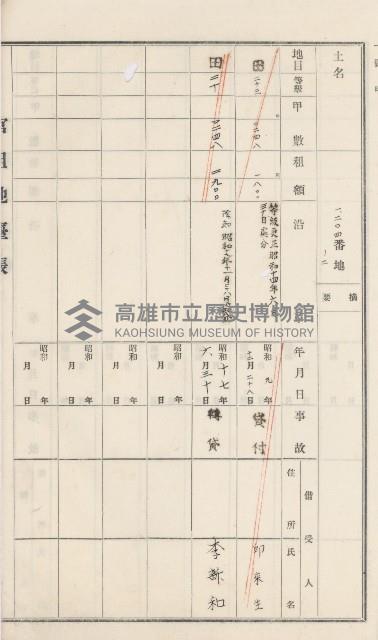 土名
二二〇四番地
ノ二
摘要
地目 等級 甲數 租額 沿
年月日 事故 借受人
住所 氏名
田 二十三 〇二四八 一八〇〇
等級更正昭和十四年六月
三十日處分
昭和九年十二月二十八日 貸付
田 二十 〇二四八 二九〇〇
昭和十七年六月三十日 轉貸 李新和
昭和 年 月 日
昭和 年 月 日
昭和 年 月 日
昭和 年 月 日
官租地臺帳
高雄市立歷史博物館
KAOHSIUNG MUSEUM OF HISTORY